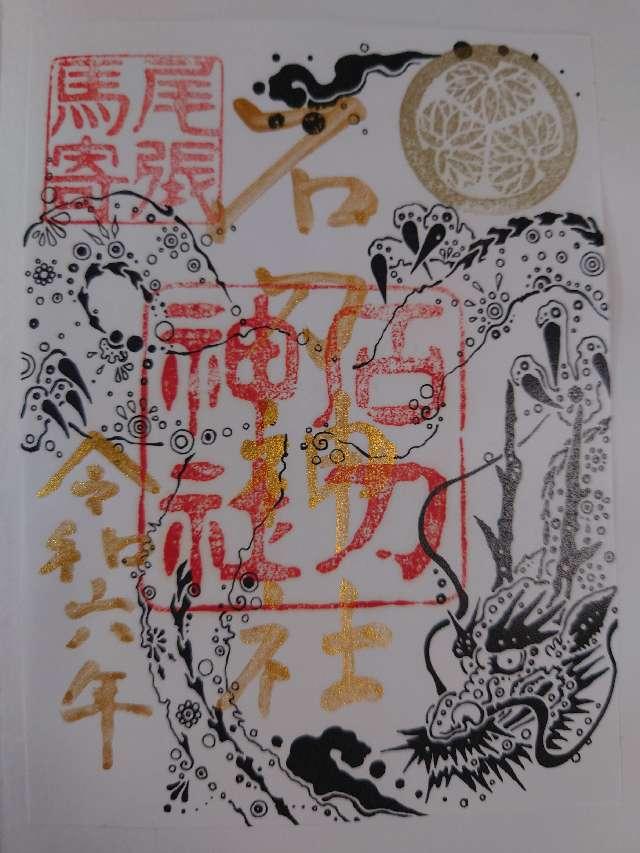 尾張
馬寄
石刀神社
石刀
神社
令和六年